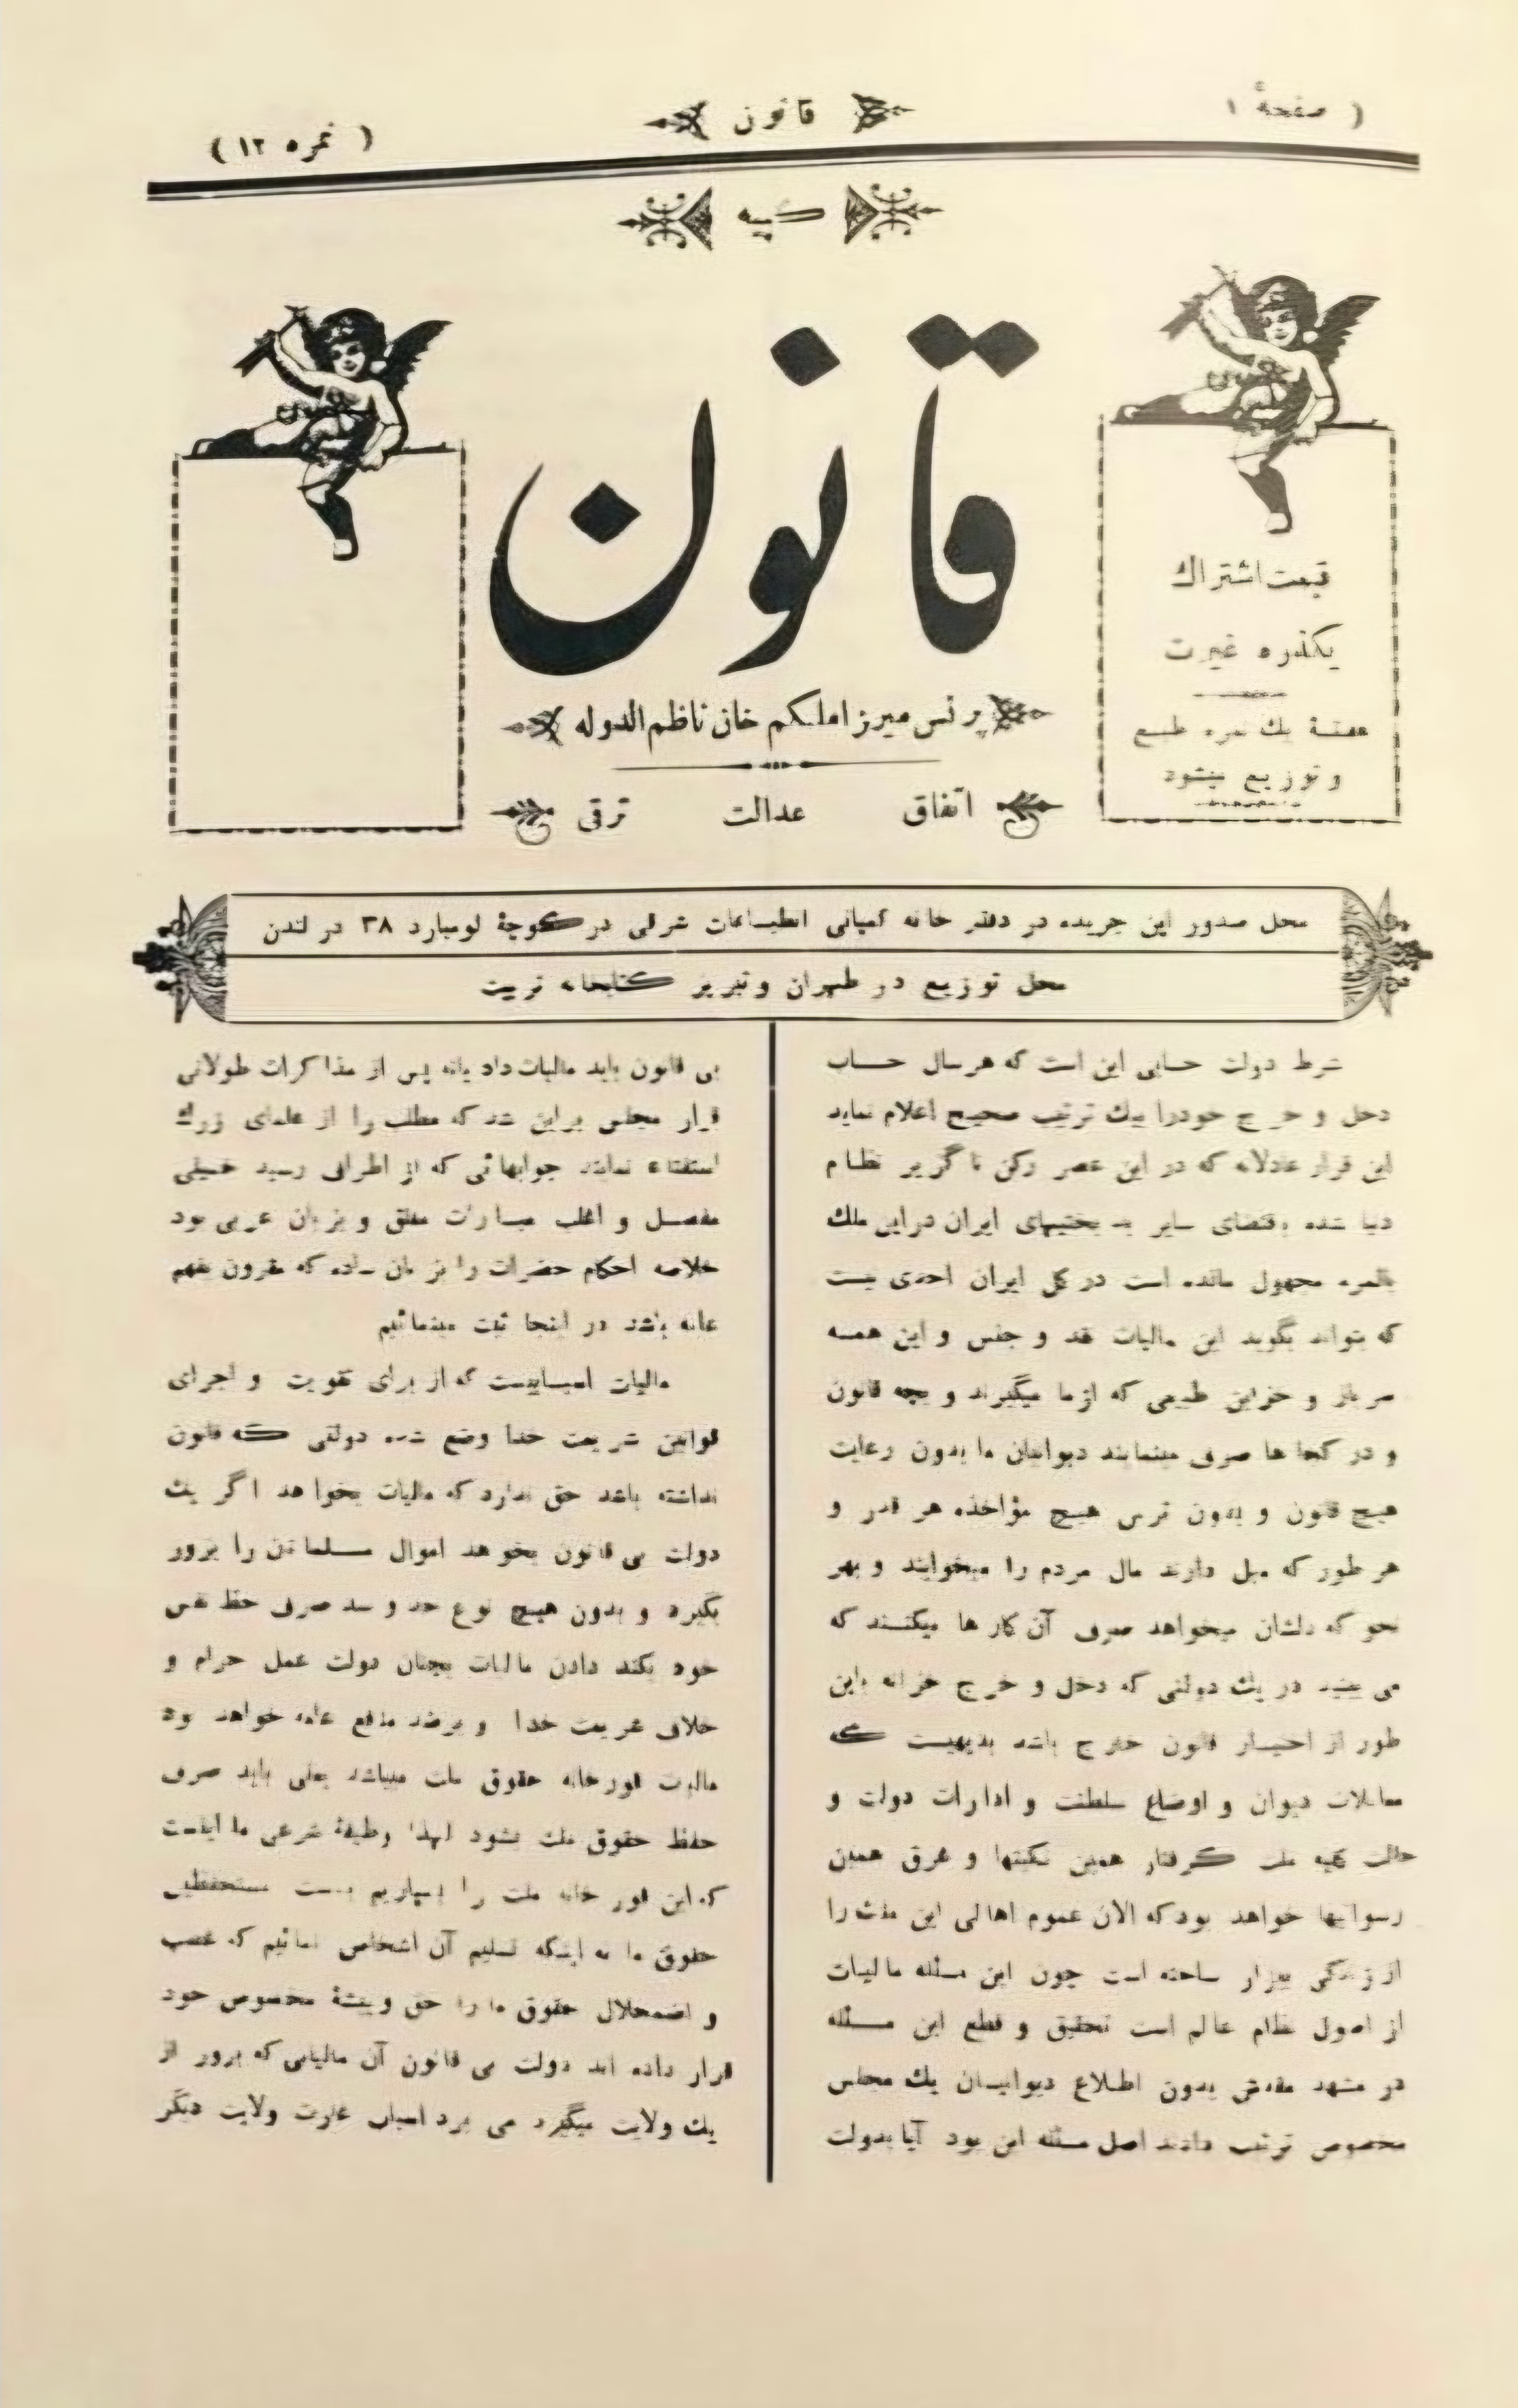 ( صفحهٔ ۱ )
قانون
( نمره ۱۲ )
کپیه
قیمت اشتراك
یکذره غیرت
هفتهٔ یك نمره طبع
و توزیع میشود
قانون
پرنس میرزا ملکم خان ناظم الدوله
اتفاق عدالت ترقی
محل صدور این جریده در دفتر خانه کمپانی انطباعات شرقی در کوچهٔ لومبارد ۳۸ در لندن
محل توزیع در طهران و تبریز کتابخانه تربیت
شرط دولت حسابی این است که هر سال حساب
دخل و خرج خودرا بیك ترتیب صحیح اعلام نماید
این قرار عادلانه که در این عصر رکن ناگزیر نظام
دنیا شده باقتضای سایر بدبختیهای ایران در این ملك
بالمره مجهول مانده است در کل ایران احدی نیست
که بتواند بگوید این مالیات نقد و جنس و این همه
سرباز و خزاین طبیعی که از ما میگیرند و بچه قانون
و در کجا ها صرف مینمایند دیوانیان ما بدون رعایت
هیچ قانون و بدون ترس هیچ مؤاخذه هر قدر و
هر طور که میل دارند مال مردم را میخوابند و بهر
نحو که دلشان میخواهد صرف آن کار ها میکنند که
می بینید در یك دولتی که دخل و خرج خزانه باین
طور از اختیار قانون خارج باشد بدیهیست که
معاملات دیوان و اوضاع سلطنت و ادارات دولت و
حالت کلیه ملت گرفتار همین نکبتها و غرق همین
رسوایها خواهد بود که الان عموم اهالی این ملك را
از زندگی بیزار ساخته است چون این مسئله مالیات
از اصول نظام عالم است تحقیق و قطع این مسئله
در مشهد مقدس بدون اطلاع دیوانیان یك مجلس
مخصوص ترتیب دادند اصل مسئله این بود آیا بدولت
بی قانون باید مالیات داد یانه پس از مذاکرات طولانی
قرار مجلس براین شد که مطلب را از علمای بزرك
استفتاء نمایند جوابهائی که از اطراف رسید خیلی
مفصل و اغلب عبارات مغلق و بزبان عربی بود
خلاصه احکام حضرات را بزبان ساده که مقرون بفهم
عامه باشد در اینجا ثبت مینمائیم
مالیات اسبابیست که از برای تقویت و اجرای
قوانین شریعت خدا وضع شده دولتی که قانون
نداشته باشد حق ندارد که مالیات بخواهد اگر یك
دولت بی قانون بخواهد اموال مسلمانان را بزور
بگیرد و بدون هیچ نوع حد و سد صرف حظ نفس
خود بکند دادن مالیات بچنان دولت عمل حرام و
خلاف شریعت خدا و برضد منافع عامه خواهد بود
مالیات قورخانه حقوق ملت میباشد یعنی باید صرف
حفظ حقوق ملت بشود لهذا وظیفهٔ شرعی ما اینست
که این قورخانه ملت را بسپاریم بدست مستحفظین
حقوق ما نه اینکه تسلیم آن اشخاص نمائیم که غصب
و اضمحلال حقوق ما را حق و پیشهٔ مخصوص خود
قرار داده اند دولت بی قانون آن مالیاتی که بزور از
یك ولایت میگیرد می برد اسباب غارت ولایت دیگر